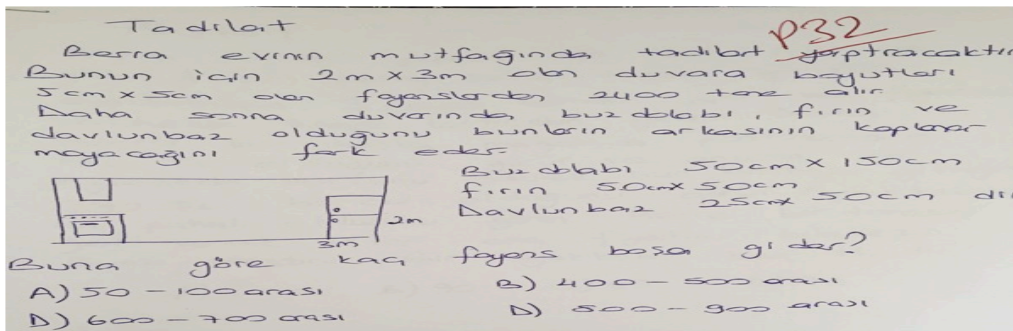 Tadilat
P32
Berra evinin mutfağında tadilat yaptıracaktır
Bunun için 2m x 3m olan duvara boyutları
5cm x 5cm olan fayanslardan 2400 tane alır
Daha sonra duvarında buzdolabı, fırın ve
davlunbaz olduğunu bunların arkasının kaplanar
mayacağını fark eder.
Buzdolabı 50cm x 150cm
fırın 50cm x 50cm
Davlunbaz 25cm x 50cm dir
2m
3m
Buna göre kaç fayans boşa gider?
A) 50 - 100 arası
B) 400 - 500 arası
D) 600 - 700 arası
D) 500 - 900 arası